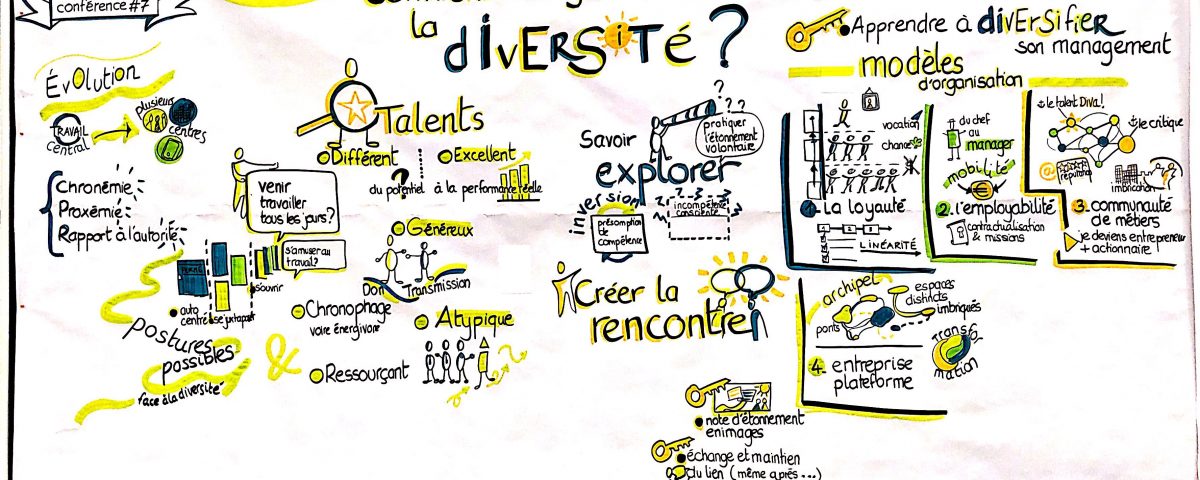 conférence #7
la diversité ?
Évolution
TRAVAIL
central
plusieurs
centres
Chronémie
Proxémie
Rapport à l'autorité
venir
travailler
tous les jours?
s'amuser au
travail?
auto
centré
se juxtapose
s'ouvrir
postures
possibles
face à la diversité
&
Talents
Différent
Excellent
du potentiel à la performance réelle
?
Généreux
Don
Transmission
Chronophage
voire énergivore
Atypique
Ressourçant
Savoir
explorer
? ? ?
pratiquer
l'étonnement
volontaire
inversion
présomption
de
compétence
incompétence
consciente
Créer la
rencontre
note d'étonnement
en images
échange et maintien
du lien (même après ...)
Apprendre à diversifier
son management
modèles
d'organisation
vocation
chance
1. La loyauté
LINÉARITÉ
du chef
au
manager
mobilité
€
2. l'employabilité
contractualisation
& missions
le talent Diva!
le critique
@
implication
3. communauté
de métiers
je deviens entrepreneur
+ actionnaire
archipel
espaces
districts
imbriqués
ponts
4. entreprise
plateforme
TRANSFO
mation